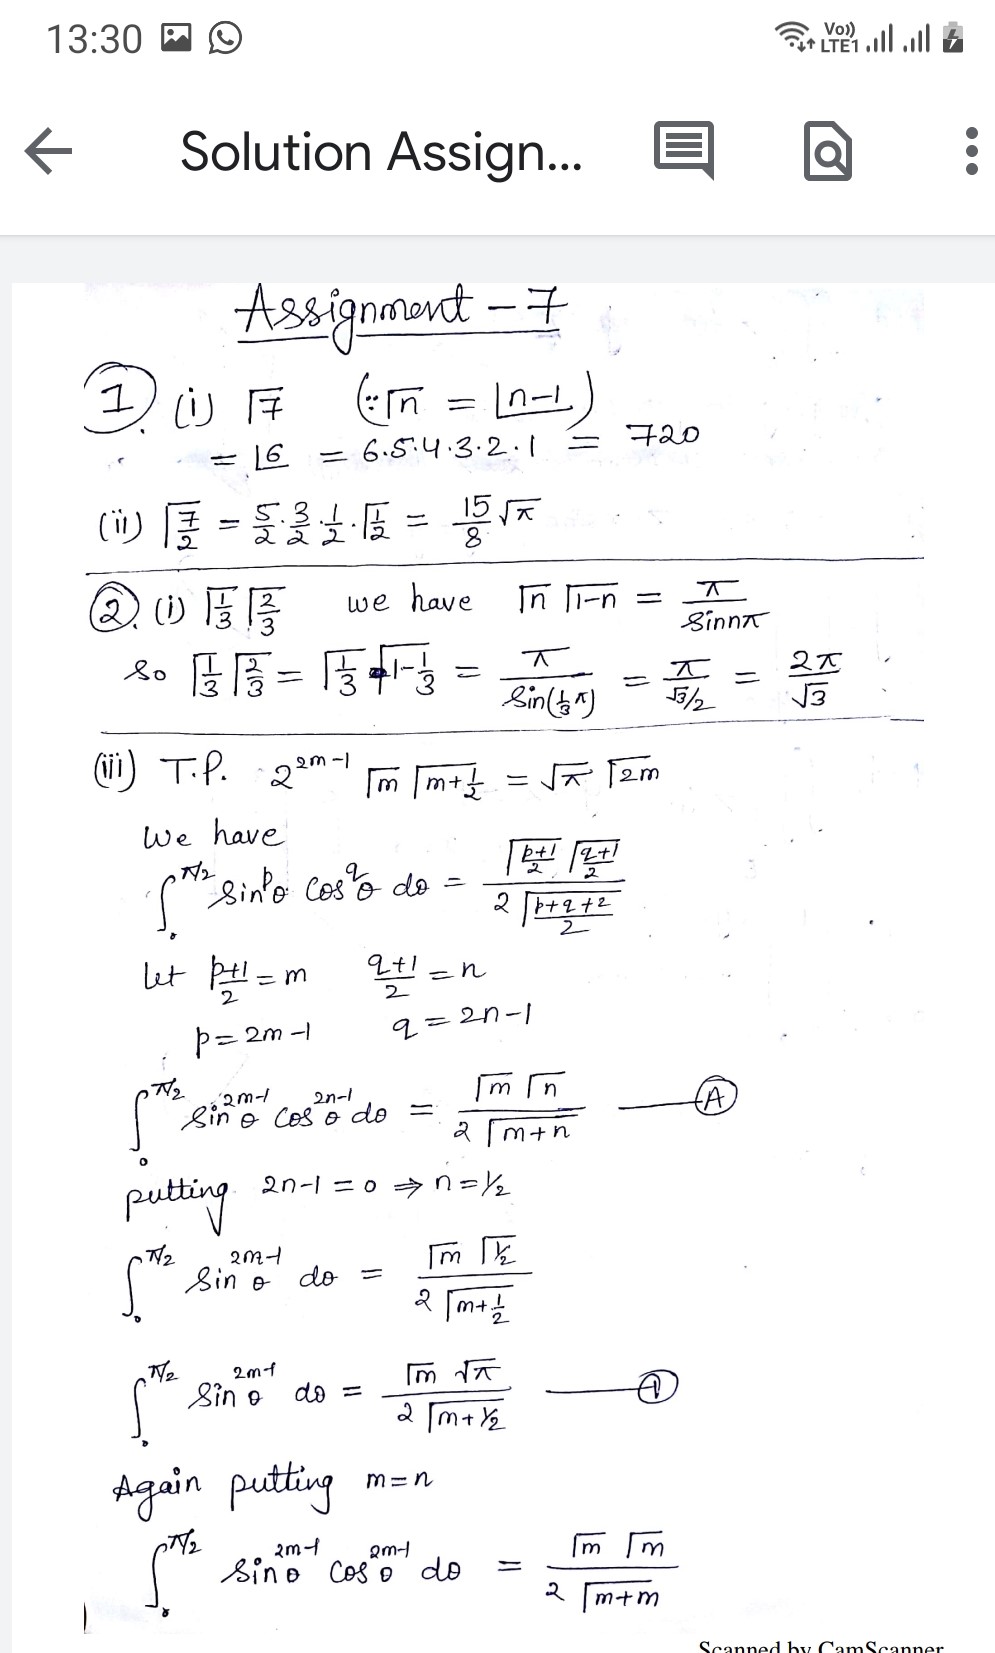 13:30 Vo)) LTE1
Solution Assign...
Assignment - 7
1. (i) Γ7 (∵ Γn = ⌊n-1)
= ⌊6 = 6.5.4.3.2.1 = 720
(ii) Γ7/2 = 5/2 . 3/2 . 1/2 . Γ1/2 = 15/8 √π
2. (i) Γ1/3 Γ2/3 we have Γn Γ1-n = π/sin nπ
so Γ1/3 Γ2/3 = Γ1/3 Γ1-1/3 = π/sin(1/3 π) = π/(√3/2) = 2π/√3
(iii) T.P. 2^(2m-1) Γm Γm+1/2 = √π Γ2m
We have
∫₀^(π/2) sin^p θ cos^q θ dθ = Γ(p+1)/2 Γ(q+1)/2 / 2 Γ(p+q+2)/2
let (p+1)/2 = m (q+1)/2 = n
p = 2m-1 q = 2n-1
∫₀^(π/2) sin^(2m-1) θ cos^(2n-1) θ dθ = Γm Γn / 2 Γm+n — A
putting 2n-1 = 0 ⇒ n = 1/2
∫₀^(π/2) sin^(2m-1) θ dθ = Γm Γ1/2 / 2 Γm+1/2
∫₀^(π/2) sin^(2m-1) θ dθ = Γm √π / 2 Γm+1/2 — 1
Again putting m=n
∫₀^(π/2) sin^(2m-1) θ cos^(2m-1) θ dθ = Γm Γm / 2 Γm+m
Scanned by CamScanner